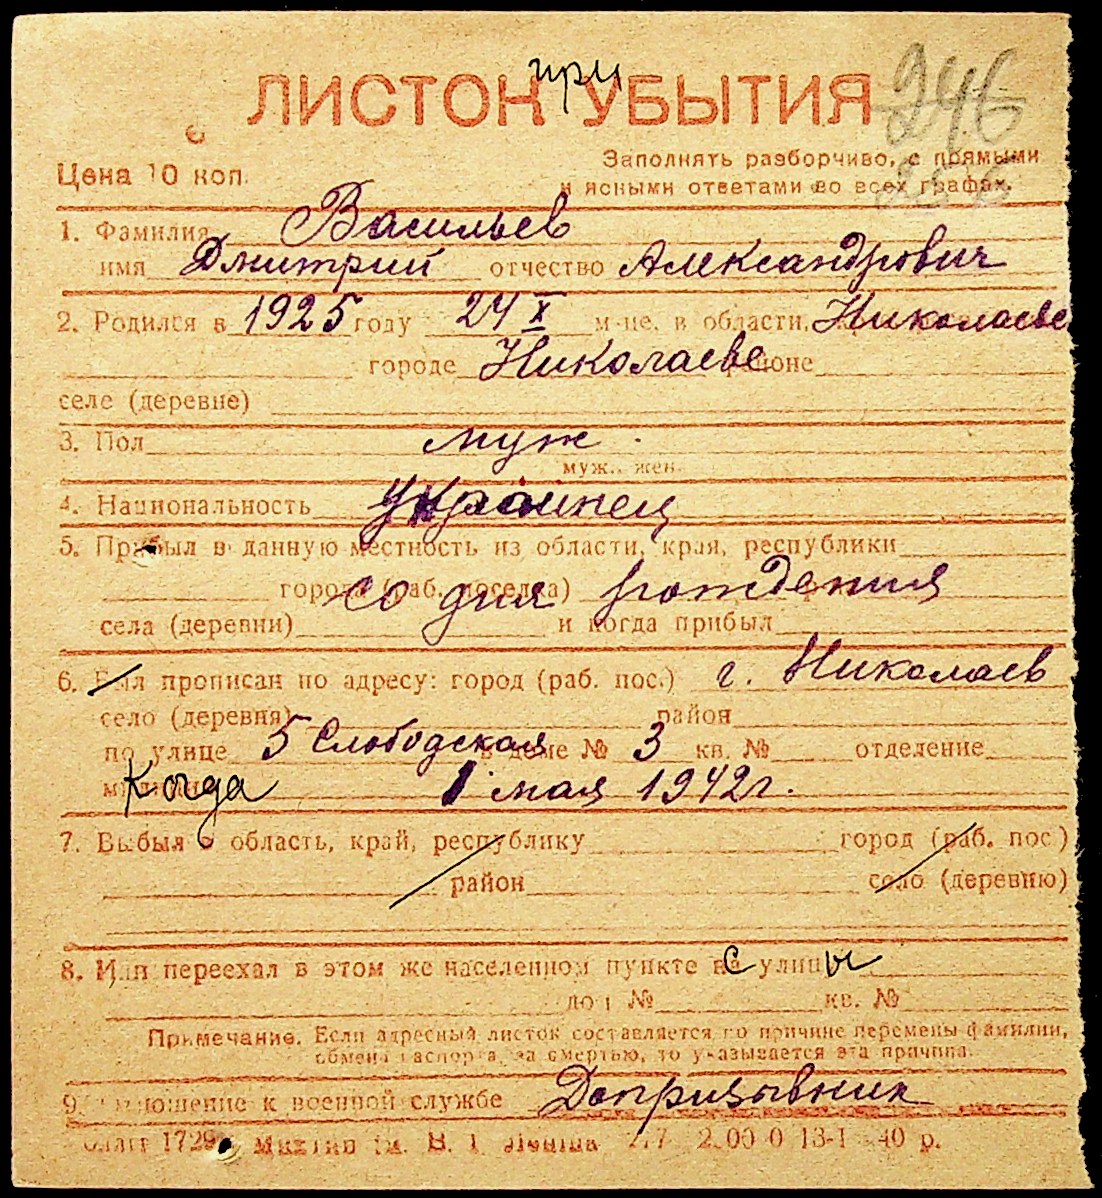 при
ЛИСТОК УБЫТИЯ
246
Цена 10 коп.
Заполнять разборчиво, с прямыми
и ясными ответами во всех графах.
1. Фамилия Васильев
имя Дмитрий отчество Александрович
2. Родился в 1925 году 24 X м-це, в области, Николаеве
городе Николаеве районе
селе (деревне)
3. Пол муж.
муж., жен.
4. Национальность украинец
5. Прибыл в данную местность из области, края, республики
города (раб. поселка) со дня рождения
села (деревни) и когда прибыл
6. Был прописан по адресу: город (раб. пос.) г. Николаев
село (деревня) район
по улице 5 Слободская в доме № 3 кв. № отделение
милиции Когда 1 мая 1942 г.
7. Выбыл в область, край, республику город (раб. пос.)
район село (деревню)
8. Или переехал в этом же населенном пункте с улицы
дом № кв. №
Примечание. Если адресный листок составляется по причине перемены фамилии,
обмена паспорта, за смертью, то указывается эта причина.
9. Отношение к военной службе Допризывник
1729 им. В. И. Ленина 40 р.